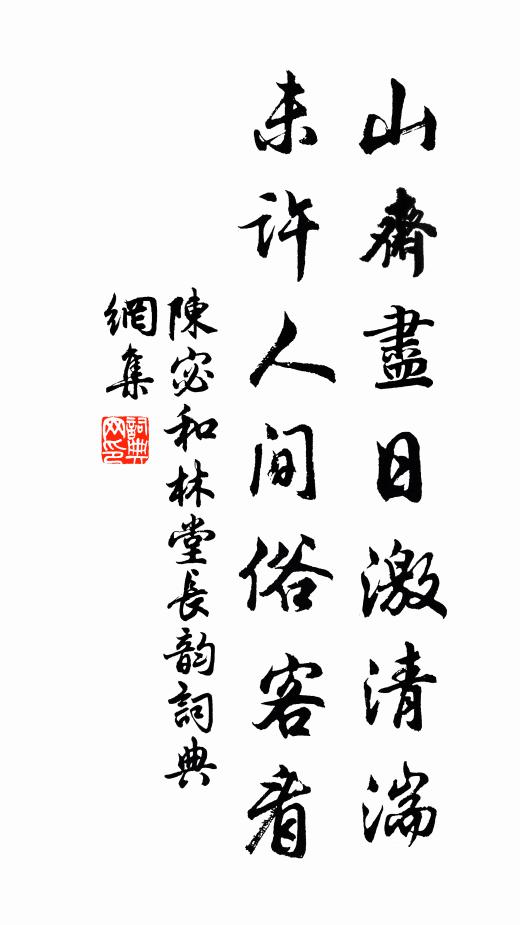 山齋盡日激清湍
未許人间俗客看
陳宓和林堂長韵詞典
網集
詞典網印